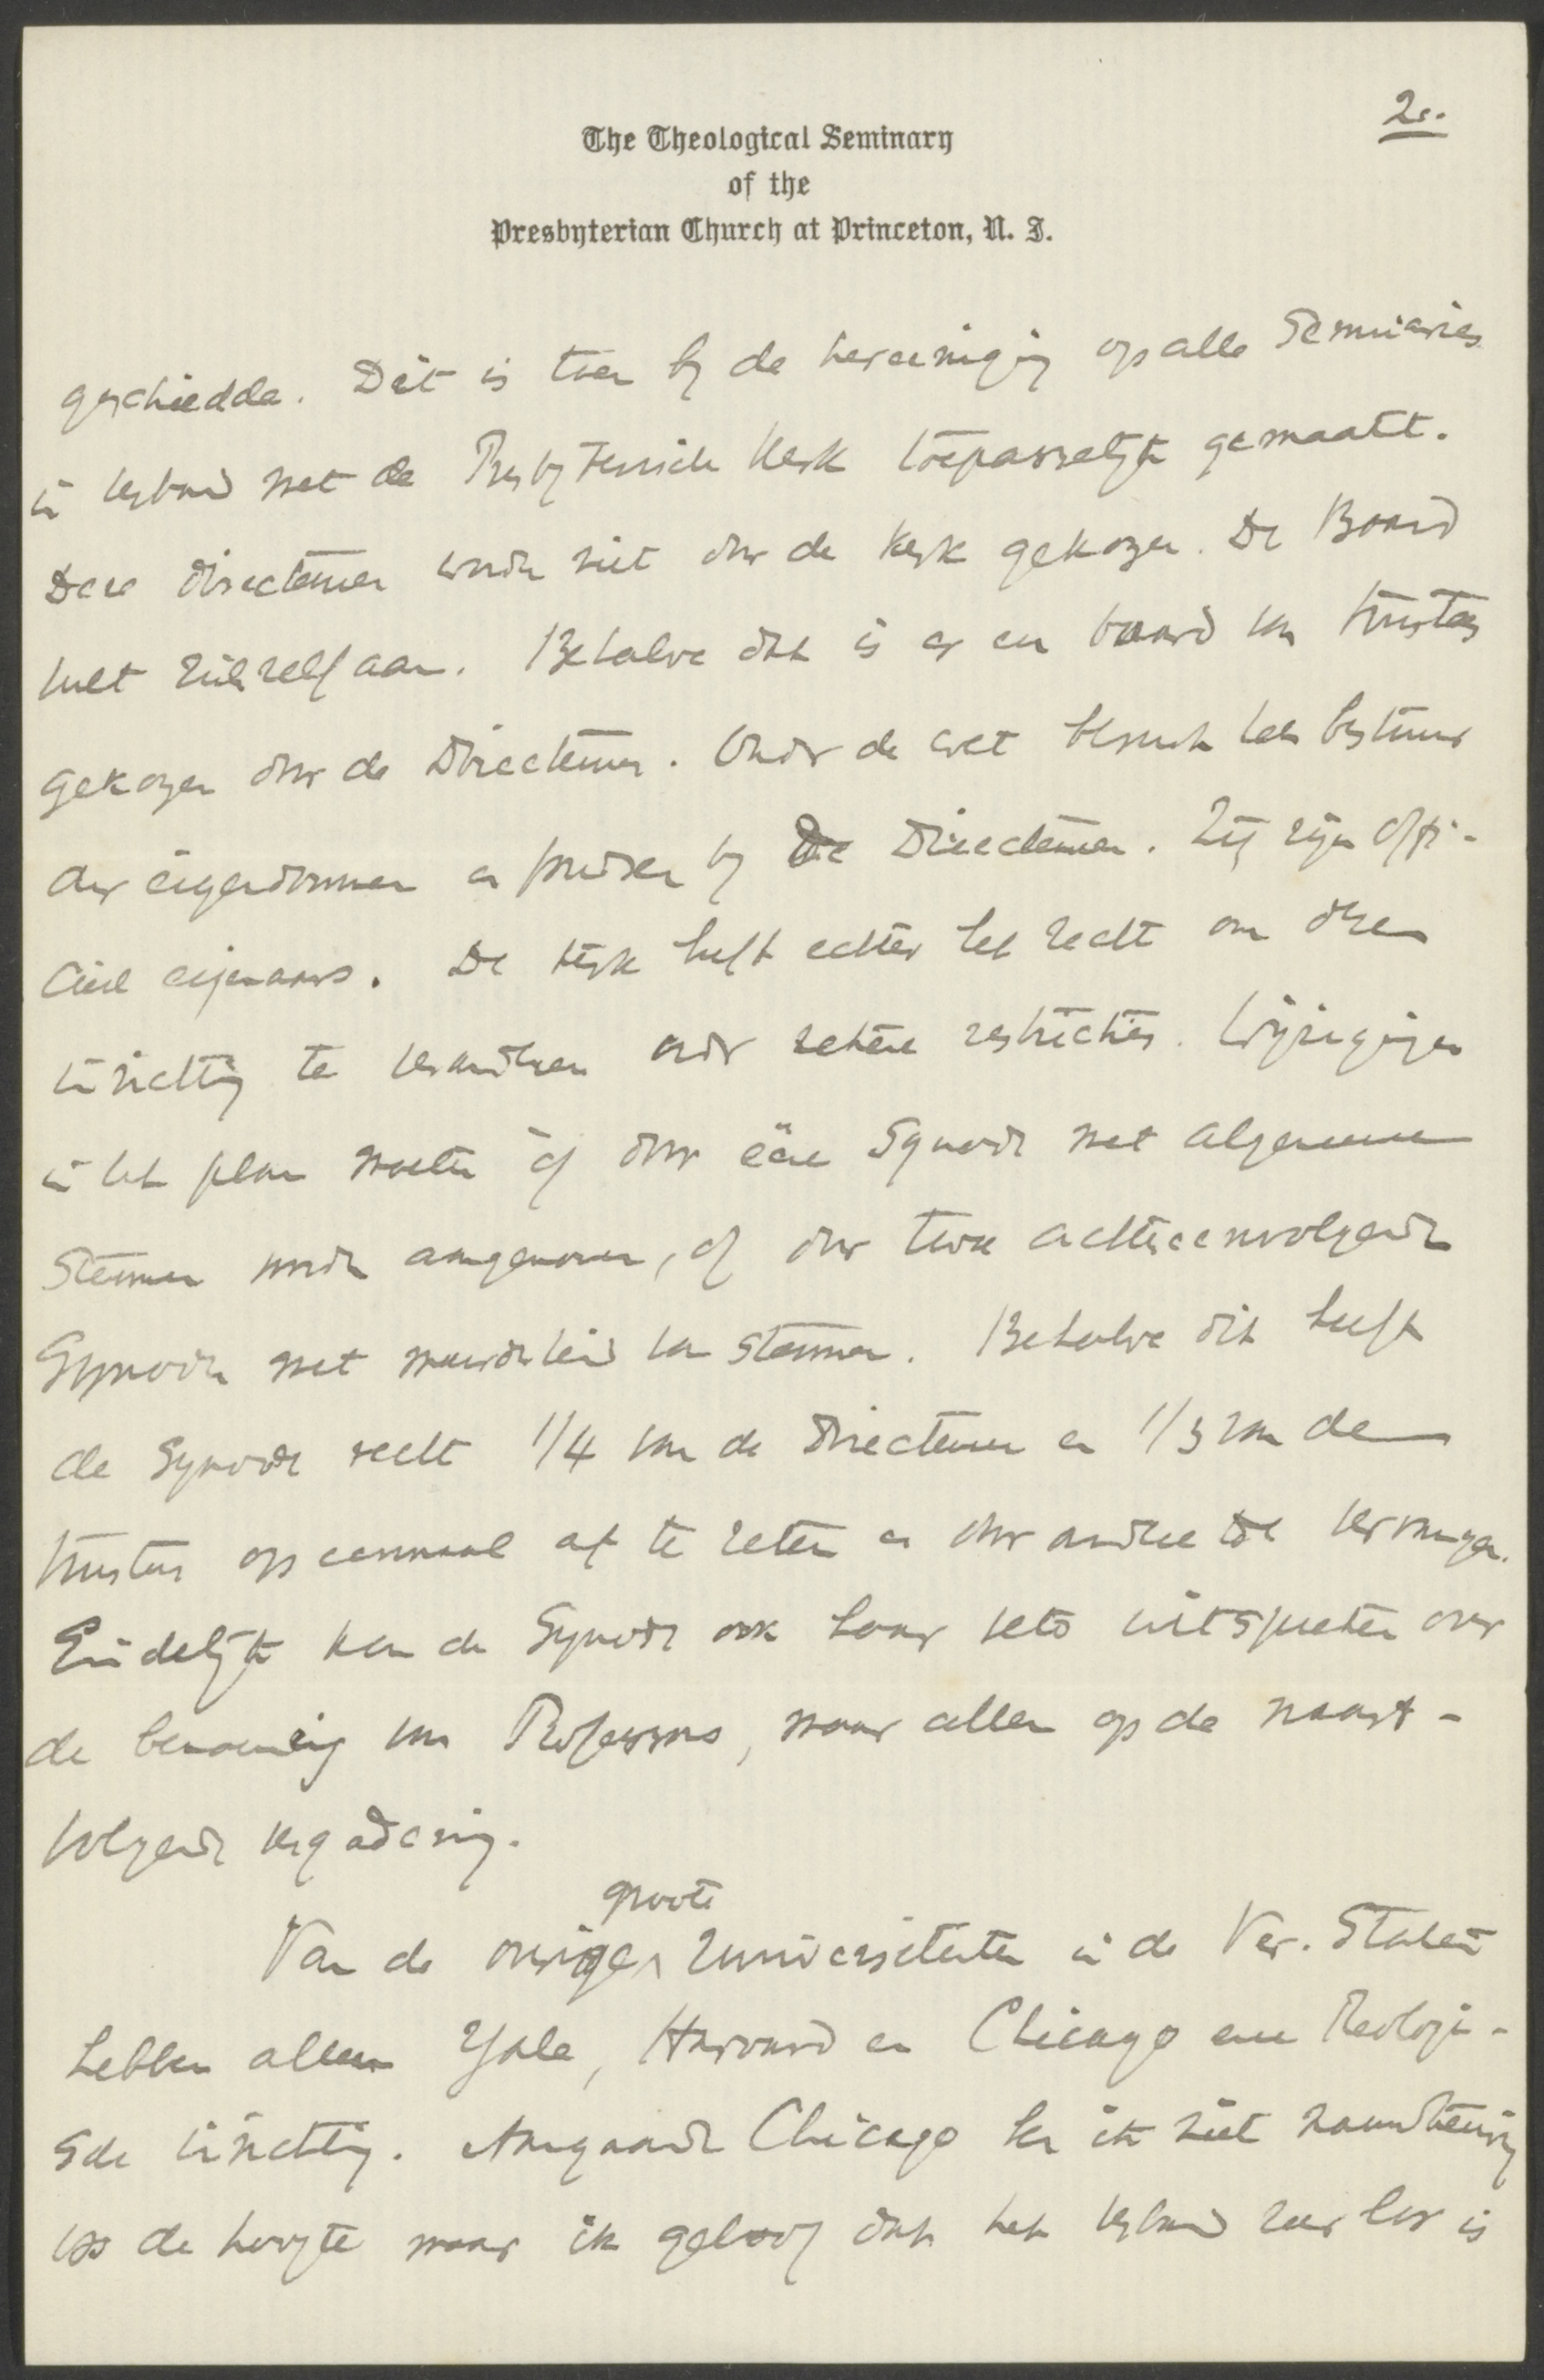 2e.
The Theological Seminary
of the
Presbyterian Church at Princeton, N. J.
geschiedde. Dit is toen bij de hereeniging op alle Seminaries
in verband met de Presbyteriale Kerk toepasselijk gemaakt.
Deze directeuren worden niet door de kerk gekozen. De Board
vult zichzelf aan. Behalve dit is er een board van trustees
gekozen door de Directeuren. Onder de wet berust het bestuur
der eigendommen en fondsen bij De Directeuren. Zij zijn offi-
cieel eigenaars. De kerk heeft echter het recht om deze
inrichting te veranderen onder zekere restricties. Wijzigingen
in het plan moeten òf door ééne Synode met algemeene
stemmen worden aangenomen, of door twee achtereenvolgende
Synoden met meerderheid van stemmen. Behalve dit heeft
de Synode recht 1/4 van de Directeuren en 1/3 van de
trustees op eenmaal af te zetten en door andere te vervangen.
Eindelijk kan de Synode ook haar veto uitspreken over
de benoeming van Professors, maar alleen op de naast-
volgende vergadering.
Van de overige groote Universiteiten in de Ver. Staten
hebben alleen Yale, Harvard en Chicago eene Theologi-
sche inrichting. Aangaande Chicago ben ik niet nauwkeurig
op de hoogte maar ik geloof dat het verband zeer los is